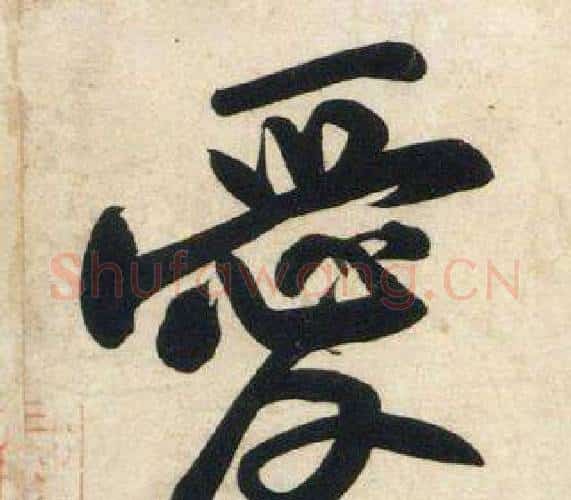 愛
Shufawang.CN